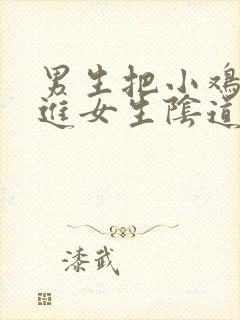 男生把小鸡
进女生陰道
漆武